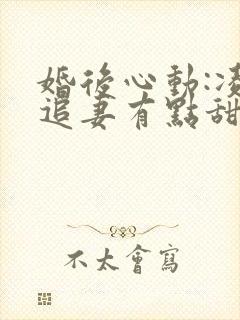 婚後心動:凌
追妻有點甜
不太會寫